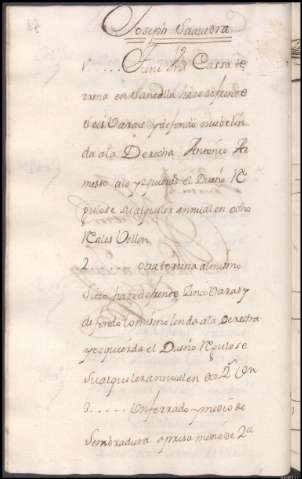 Joseph Saavedra
1 .... Tiene una Cassa te
rrena en Sanfalla haze de frente
Seis Varas y de fondo nueve lin
da ala Derecha Antonio Ar
mesto ala yzquierda el Dueño R
gulose su alquiler annual en ocho
Rales Vellon
2 .... otra terrena al mismo
Sitio haze de frente Zinco Varas y
de fondo lo mismo linda ala derecha
y ezquierda el Dueño Regulose
su alquiler annual en 2 Rs Von
3 ..... Un ferrado y medio de
Sembradura a prado medio de 2ª